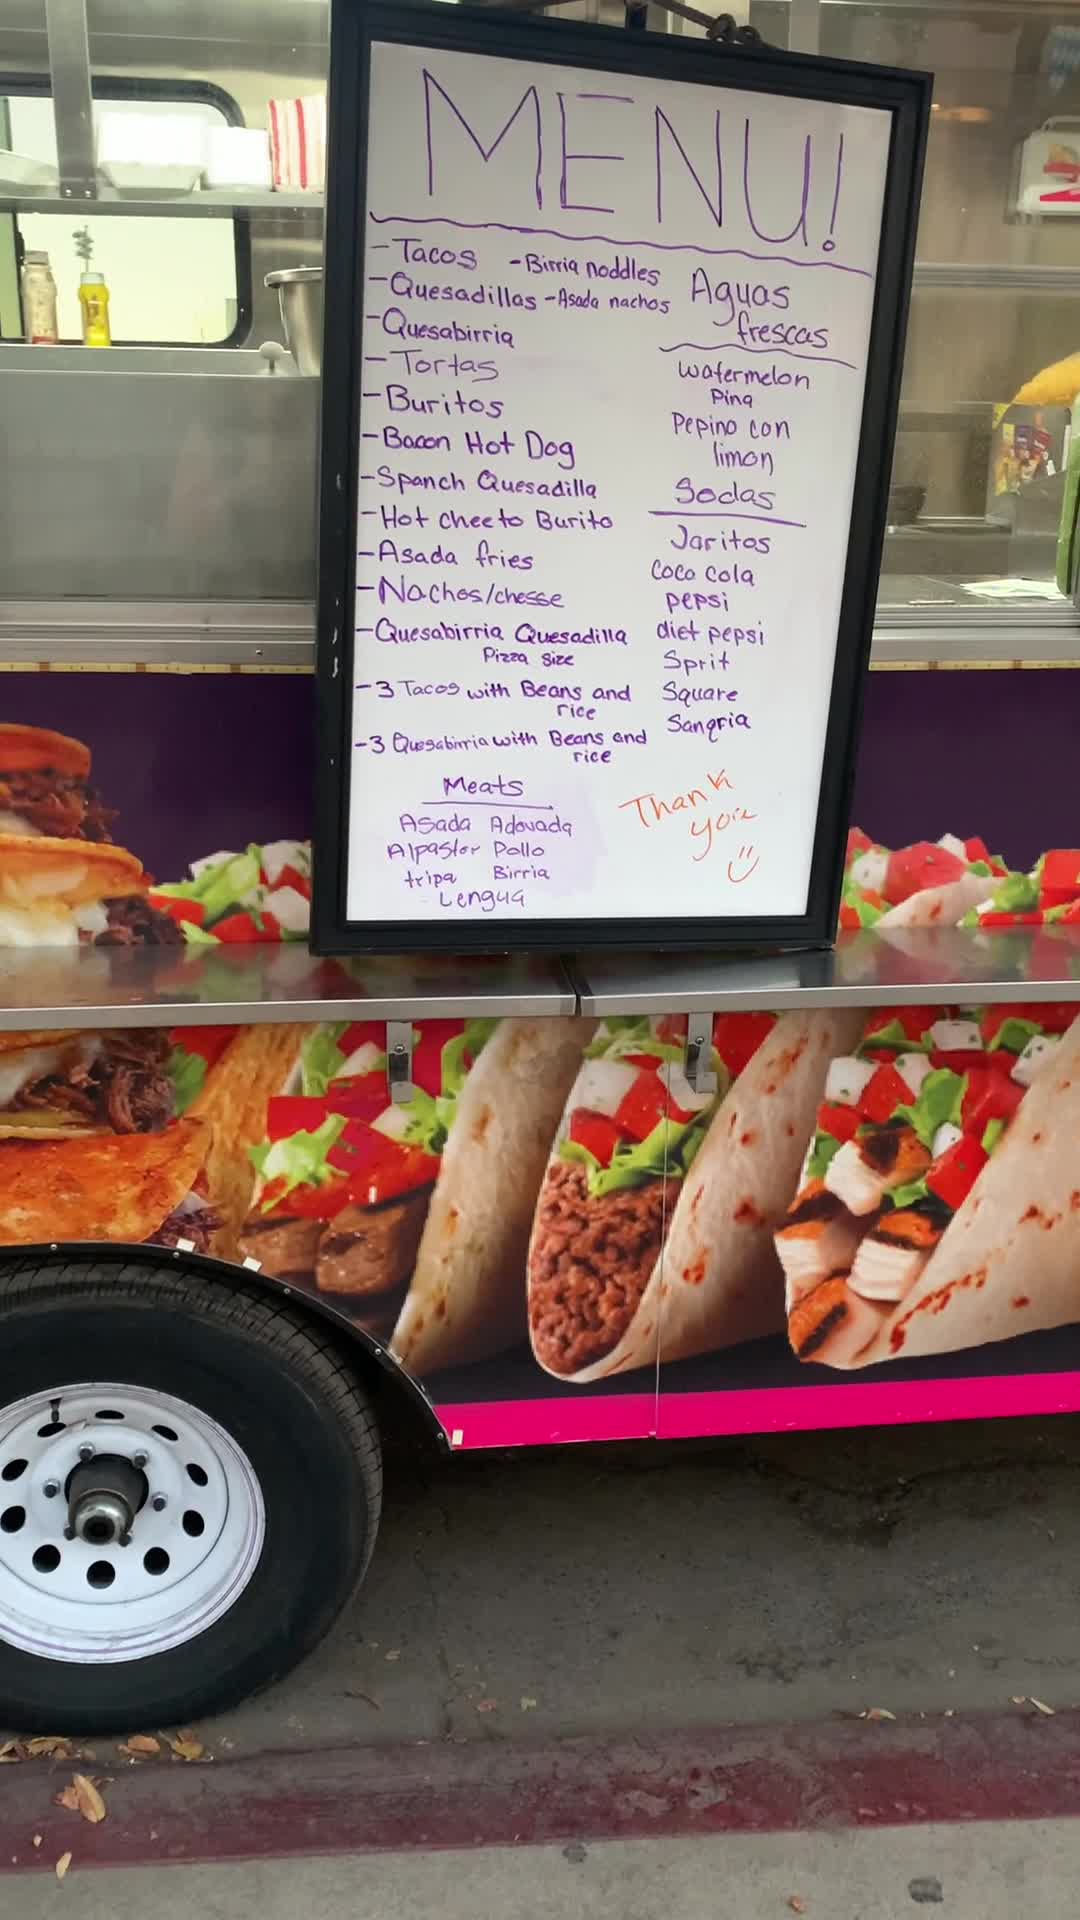 MENU!
-Tacos -Birria noddles
-Quesadillas -Asada nachos
-Quesabirria
-Tortas
-Buritos
-Bacon Hot Dog
-Spanch Quesadilla
-Hot cheeto Burito
-Asada fries
-Nachos/chesse
-Quesabirria Quesadilla
Pizza size
-3 Tacos with Beans and
rice
-3 Quesabirria with Beans and
rice
Meats
Asada Adovada
Alpastor Pollo
tripa Birria
Lengua
Aguas
frescas
watermelon
Pina
Pepino con
limon
Sodas
Jaritos
Coco cola
pepsi
diet pepsi
Sprit
Square
Sangria
Thank
you